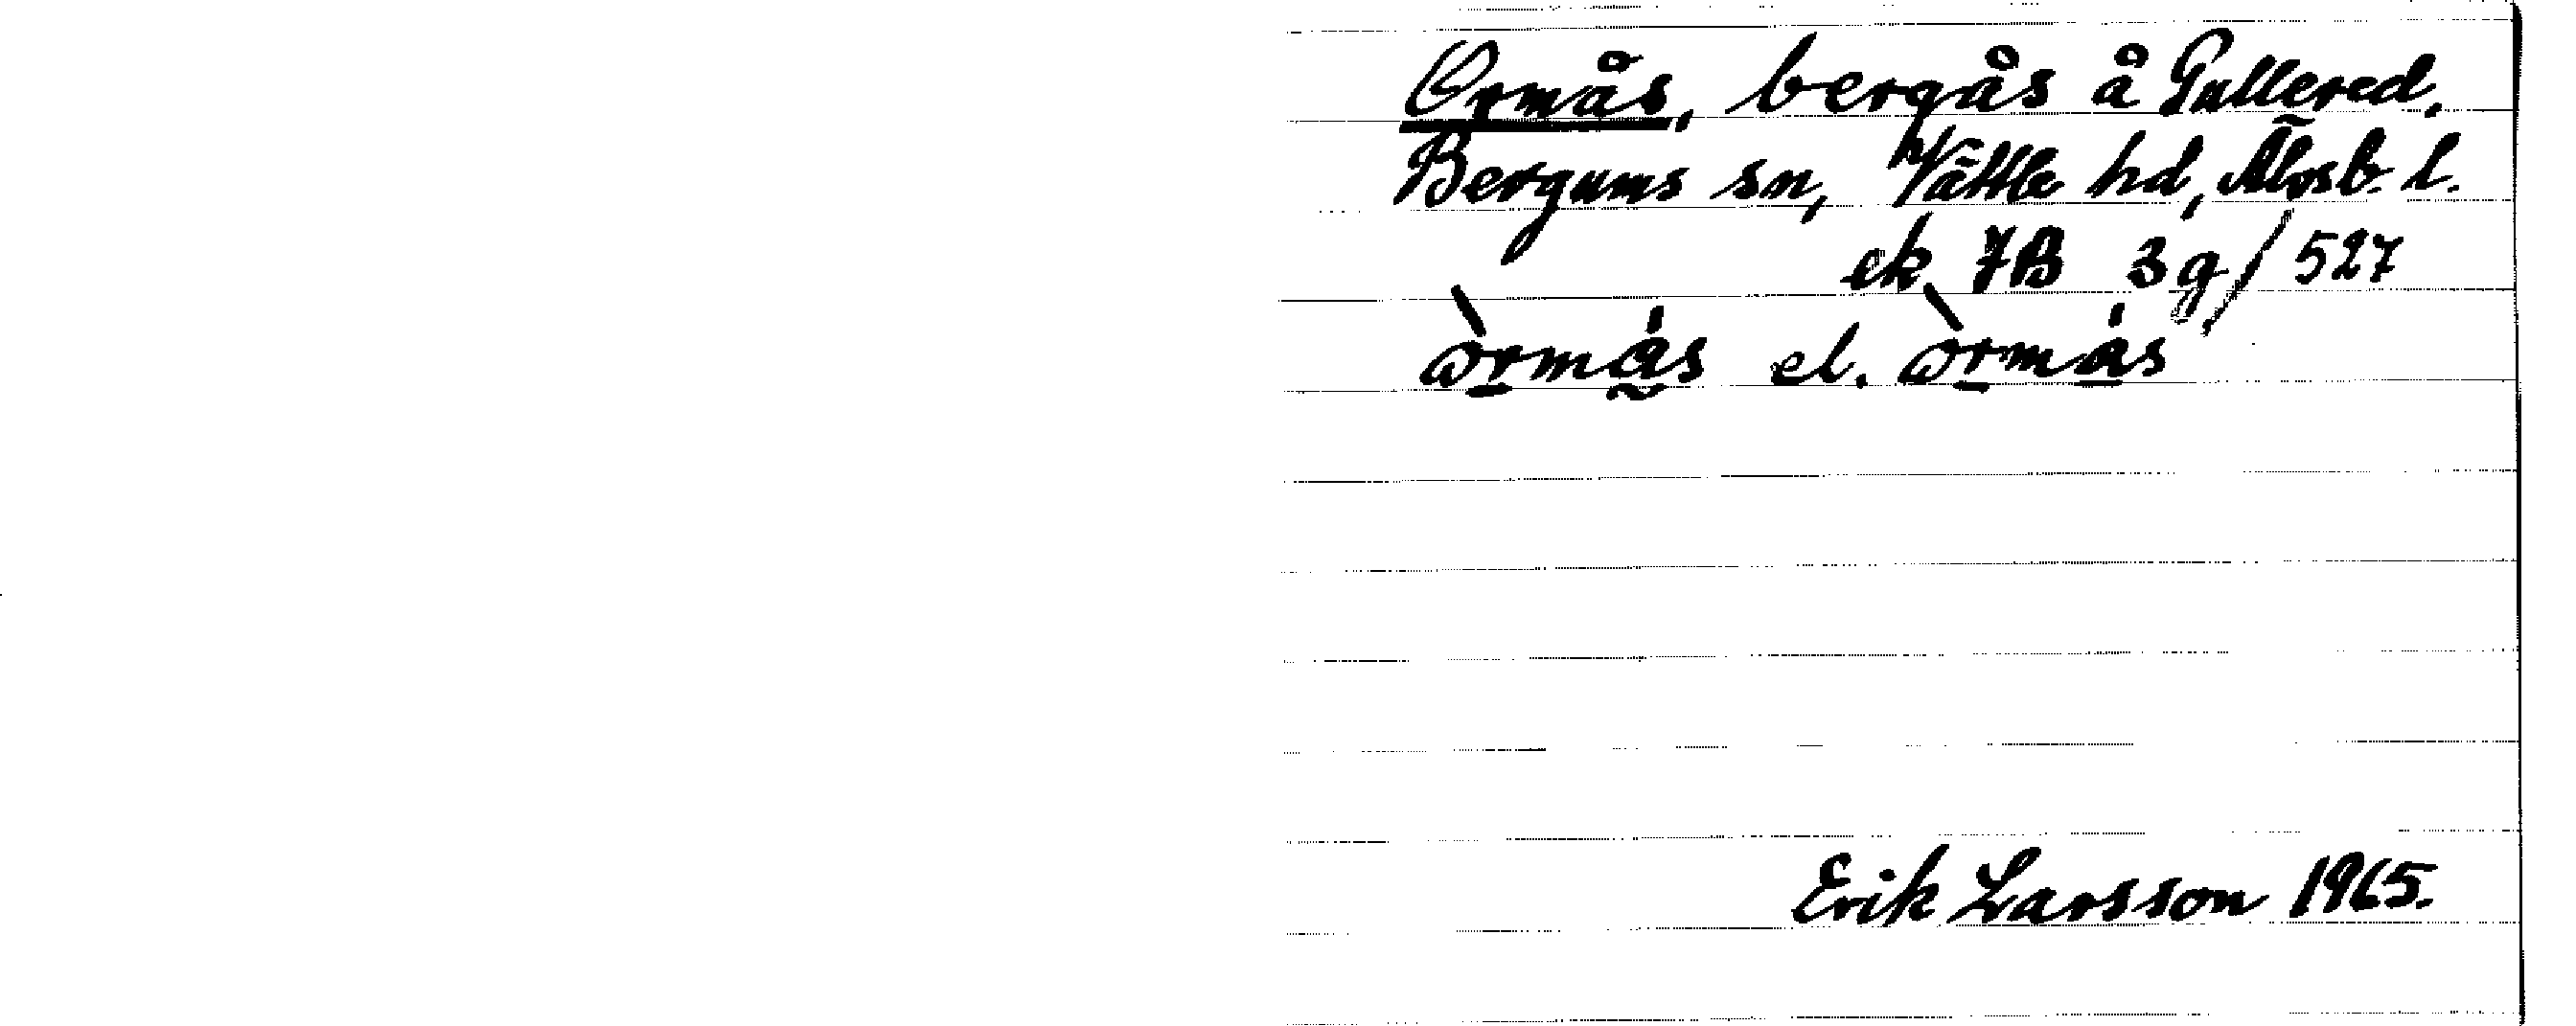 Ormås, bergås å Gullered.
Bergums sn, Vättle hd, Älvsb. l.
ek 7B 3g/527
òrmås el. òrmås
Erik Larsson 1965.